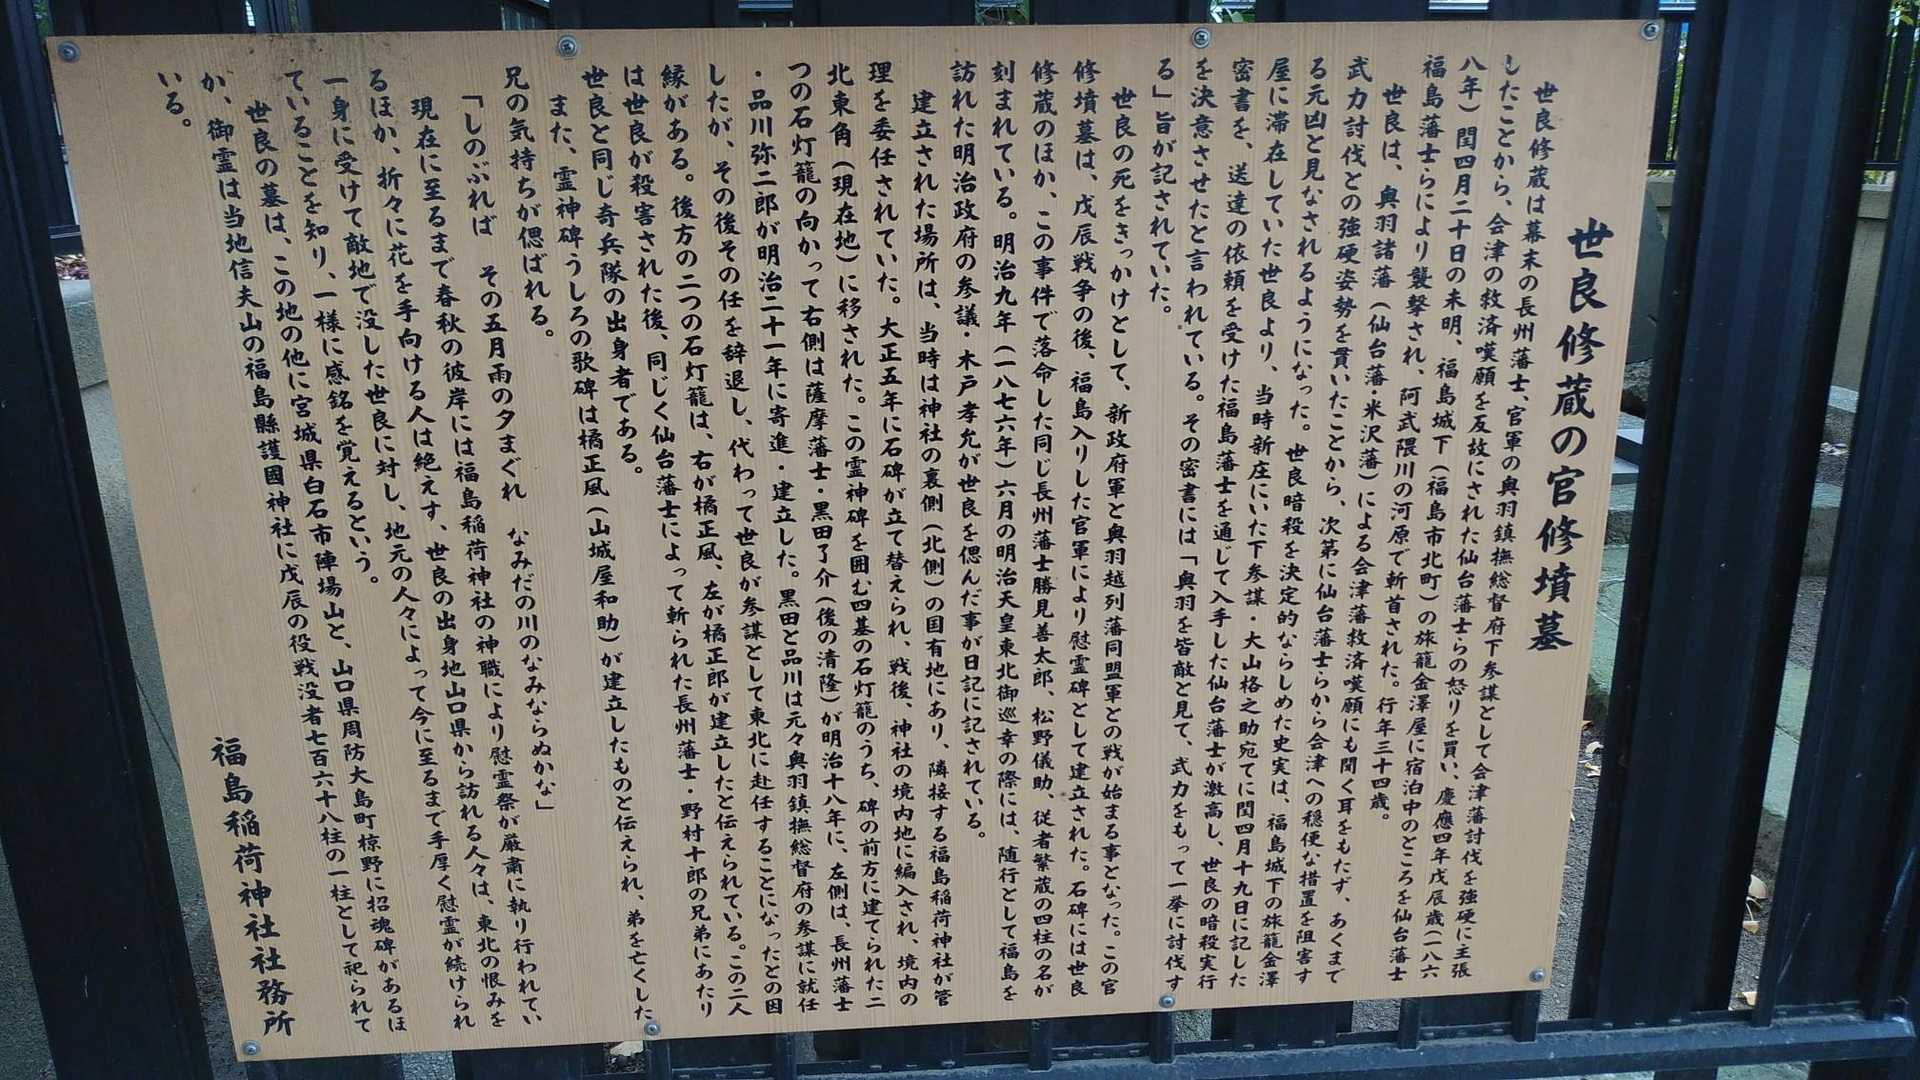 世良修蔵の官修墳墓
世良修蔵は幕末の長州藩士、官軍の奥羽鎮撫総督府下参謀として会津藩討伐を強硬に主張
したことから、会津の救済嘆願を反故にされた仙台藩士らの怒りを買い、慶應四年戊辰歳(一八六
八年)閏四月二十日の未明、福島城下(福島市北町)の旅籠金澤屋に宿泊中のところを仙台藩士
福島藩士らにより襲撃され、阿武隈川の河原で斬首された。行年三十四歳。
世良は、奥羽諸藩(仙台藩・米沢藩)による会津藩救済嘆願にも聞く耳をもたず、あくまで
武力討伐との強硬姿勢を貫いたことから、次第に仙台藩士らから会津への穏便な措置を阻害す
る元凶と見なされるようになった。世良暗殺を決定的ならしめた史実は、福島城下の旅籠金澤
屋に滞在していた世良より、当時新庄にいた下参謀・大山格之助宛てに閏四月十九日に記した
密書を、送達の依頼を受けた福島藩士を通じて入手した仙台藩士が激高し、世良の暗殺実行
を決意させたと言われている。その密書には「奥羽を皆敵と見て、武力をもって一挙に討伐す
る」旨が記されていた。
世良の死をきっかけとして、新政府軍と奥羽越列藩同盟軍との戦が始まる事となった。この官
修墳墓は、戊辰戦争の後、福島入りした官軍により慰霊碑として建立された。石碑には世良
修蔵のほか、この事件で落命した同じ長州藩士勝見善太郎、松野儀助、従者繁蔵の四柱の名が
刻まれている。明治九年(一八七六年)六月の明治天皇東北御巡幸の際には、随行として福島を
訪れた明治政府の参議・木戸孝允が世良を偲んだ事が日記に記されている。
建立された場所は、当時は神社の裏側(北側)の国有地にあり、隣接する福島稲荷神社が管
理を委任されていた。大正五年に石碑が立て替えられ、戦後、神社の境内地に編入され、境内の
北東角(現在地)に移された。この霊神碑を囲む四基の石灯籠のうち、碑の前方に建てられた二
つの石灯籠の向かって右側は薩摩藩士・黒田了介(後の清隆)が明治十八年に、左側は、長州藩士
・品川弥二郎が明治二十一年に寄進・建立した。黒田と品川は元々奥羽鎮撫総督府の参謀に就任
したが、その後その任を辞退し、代わって世良が参謀として東北に赴任することになったとの因
縁がある。後方の二つの石灯籠は、右が橘正風、左が橘正郎が建立したと伝えられている。この二人
は世良が殺害された後、同じく仙台藩士によって斬られた長州藩士・野村十郎の兄弟にあたり
世良と同じ奇兵隊の出身者である。
また、霊神碑うしろの歌碑は橘正風(山城屋和助)が建立したものと伝えられ、弟を亡くした
兄の気持ちが偲ばれる。
「しのぶれば その五月雨の夕まぐれ なみだの川のなみならぬかな」
現在に至るまで春秋の彼岸には福島稲荷神社の神職により慰霊祭が厳粛に執り行われてい
るほか、折々に花を手向ける人は絶えず、世良の出身地山口県から訪れる人々は、東北の恨みを
一身に受けて敵地で没した世良に対し、地元の人々によって今に至るまで手厚く慰霊が続けられ
ていることを知り、一様に感銘を覚えるという。
世良の墓は、この地の他に宮城県白石市陣場山と、山口県周防大島町椋野に招魂碑があるほ
か、御霊は当地信夫山の福島縣護國神社に戊辰の役戦没者七百六十八柱の一柱として祀られて
いる。
福島稲荷神社社務所